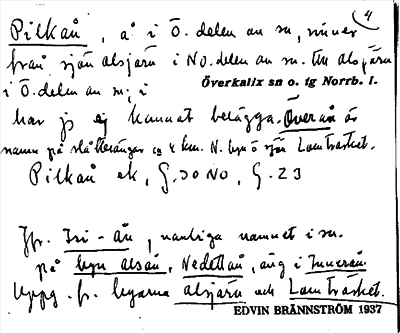 4
Pilkaå, å i Ö. delen av sn, rinner
från sjön Alsjärv i NO. delen av sn. till Alsjärv
i Ö. delen av sn; i
Överkalix sn o. tg Norrb. l.
har jg ej kunnat belägga. Överån är
namn på slåtterängar ca 4 km. N. byn ö sjön Lomträsket.
Pilkaå ek, G. 30 NO, G. 23
Jfr. Iri-ån, vanliga namnet i sn.
på byn Alsån, Nederån, äng i Innerån.
Uppg. fr. byarna Alsjärv och Lomträsket.
EDVIN BRÄNNSTRÖM 1937